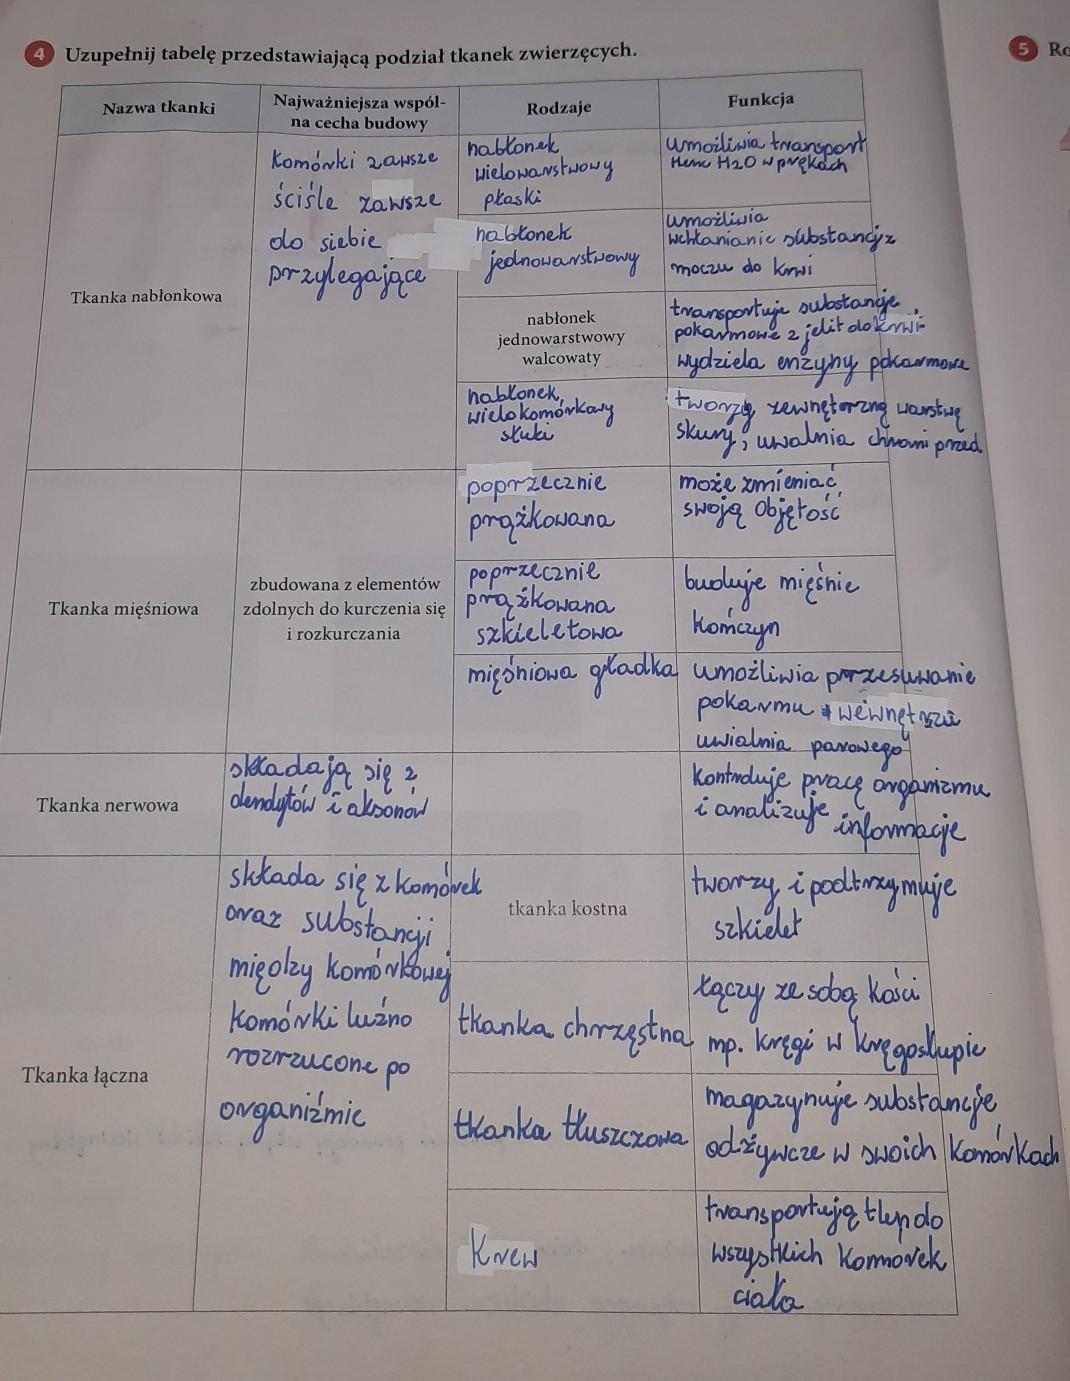 4 Uzupełnij tabelę przedstawiającą podział tkanek zwierzęcych.
5 Ro
Nazwa tkanki
Najważniejsza wspól-
na cecha budowy
Rodzaje
Funkcja
Tkanka nabłonkowa
komórki zawsze
ściśle zawsze
do siebie
przylegające
nabłonek
wielowarstwowy
płaski
umożliwia transport
H2O w
nabłonek
jednowarstwowy
umożliwia
wchłanianie substancji z
moczu do krwi
nabłonek
jednowarstwowy
walcowaty
transportuje substancje
pokarmowe z jelit do krwi
wydziela enzymy pokarmowe
nabłonek
wielokomórkowy
tworzy zewnętrzną warstwę
skury, uwalnia chroni przed
Tkanka mięśniowa
zbudowana z elementów
zdolnych do kurczenia się
i rozkurczania
poprzecznie
prążkowana
może zmieniać
swoją objętość
poprzecznie
prążkowana
szkieletowa
buduje mięśnie
kończyn
mięśniowa gładka
umożliwia przesuwanie
pokarmu
Tkanka nerwowa
składają się z
dendytów i aksonów
kontroluje pracę organizmu
i analizuje
informacje
Tkanka łączna
składa się z komórek
oraz substancji
między komórkowej
komórki luźno
rozrzucone po
organiźmie
tkanka kostna
tworzy i podtrzymuje
szkielet
tkanka chrzęstna
łączy ze sobą kości
np. kręgi w kręgosłupie
tkanka tłuszczowa
magazynuje substancje
odżywcze w swoich komórkach
krew
transportują tlen do
wszystkich komorek
ciała